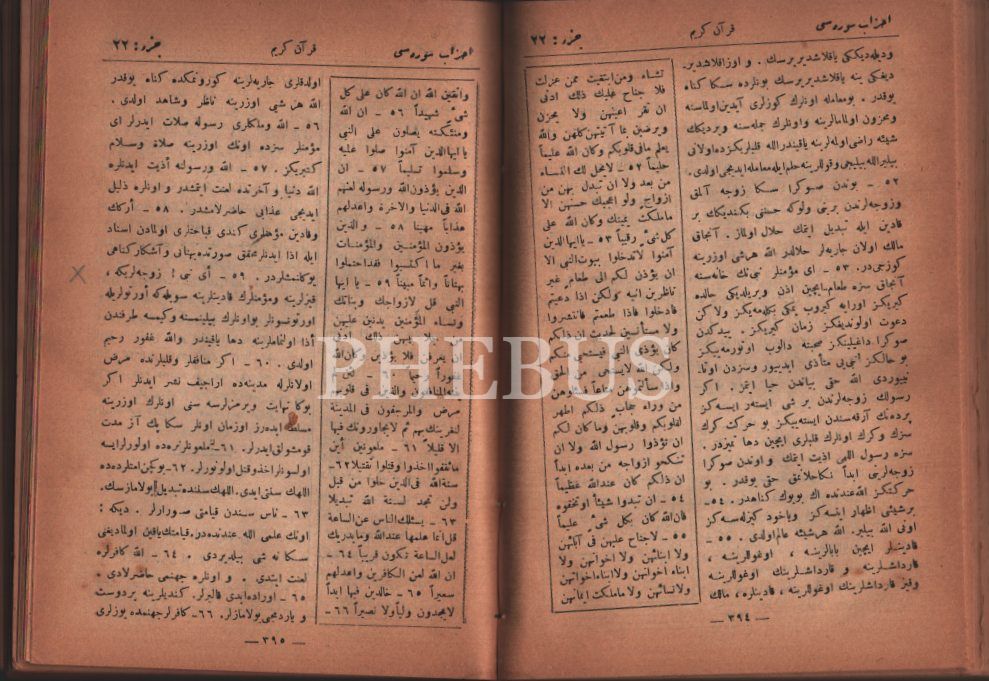 احزاب سوره‌سی
قرآن کریم
جزء : ٢٢
ودیله‌دیککی یاقلاشدیریرسك . و اوزاقلاشدیر
دیغکی ینه یاقلاشدیریرسك بونلرده سکا کناه
یوقدر . بومعامله اونلرك کوزلری آیدین‌اولماسنه
ومحزون اولمامالرینه واونلرك جمله‌سنه ویردیکك
شیئه راضی‌اولمه‌لرینه یاقیندر الله قلبلریکزده‌اولانی
بیلیر الله بیلیجی وقوللرینه حلم‌ایله‌معامله‌ایدیجی اولدی .
٥٢ ــ بوندن صوکرا سکا زوجه آلمق
وزوجه‌لرندن برینی ولوکه حسنی بکندیکك بر
قادین ایله تبدیل ایتمك حلال اولماز . آنجاق
مالك اولان جاریه‌لر حلالدر الله هرشی اوزرینه
کوزجی‌در. ٥٣ ــ ای مؤمنلر نبی‌نك خانه‌سنه
آنجاق سزه طعام‌ایچین اذن ویریلدیکی حالده
کیریکز اورایه کیروب یمکی بکله‌مه‌یکز ولاکن
دعوت اولوندیغکز زمان کیریکز . ییدکدن
صوکرا داغیلیکز صحبته دالوب اوتورمه‌ییکز
بو حالکز نبی‌یی متأذی ایدییور وسزدن اوتا
نییوردی الله حتی بیاندن حیا ایتمز . اکر
رسولك زوجه‌لرندن بر شی ایسته‌ر ایسه‌کز
پرده‌نك آرقه‌سندن ایسته‌ییکز بو حرکت کرك
سزك وکرك اونلرك قلبلری ایچین دها تمیزدر .
سزه رسول اللهی اذیت ایتمك و اوندن صوکرا
زوجه‌لرینی ابداً نکاحلانمق حتی یوقدر . بو
حرکتکز الله‌عندنده اك بویوك کناهدر. ٥٤ ــ
برشیئی اظهار ایتسه‌کز ویاخود کیزله‌سه‌کز
اونی الله بیلیر. الله هرشیئه عالم‌اولدی. ٥٥ ــ
قادینلر ایچین بابالرینه ، اوغوللرینه ،
قارداشلرینه و قارداشلرینك اوغوللرینه
وقیز قارداشلرینك اوغوللرینه ، قادینلره ، مالك
تشاء ومن‌ابتغیت ممن عزلت
فلا جناح علیك ذلك ادنی
ان تقر اعینهن ولا یحزن
ویرضین بما آتیتهن‌کلهن والله
یعلم مافی‌قلوبکم وکان الله علیماً
حلیماً ٥٢ ــ لایحل لك النساء
من بعد ولا ان تبدل بهن من
ازواج ولو اعجبك حسنهن الا
ماملکت یمینك وکان الله علی
کل‌شئ رقیباً ٥٣ ــ یاایهاالذین
آمنوا لاتدخلوا بیوت‌النبی الا
ان یؤذن لکم الی طعام غیر
ناظرین انیه ولکن اذا دعیتم
فادخلوا فاذا طعمتم فانتشروا
ولا مستأنسین لحدیث ان‌ذلکم
کان یؤذی النبی فیستحی منکم
والله لایستحی من الحق
واذا سألتموهن متاعاً فاسئلوهن
من وراء حجاب ذلکم اطهر
لقلوبکم وقلوبهن وماکان لکم
ان تؤذوا رسول الله ولا ان
تنکحو ازواجه من بعده ابداً
ان ذلکم کان عندالله عظیماً
٥٤ ــ ان تبدوا شیئاً اوتخفوه
فان‌الله کان بکل شئ علیماً
٥٥ ــ لاجناح علیهن فی آبائهن
ولا ابنائهن ولا اخوانهن ولا
ابناء اخوانهن ولاابناءاخواتهن
ولانسائهن ولا ماملکت ایمانهن
— ٣٩٤ —
احزاب سوره‌سی
قرآن کریم
جزء : ٢٢
واتقین الله ان الله کان علی کل
شئ شهیداً ٥٦ ــ ان الله
وملئکته یصلون علی النبی
یاایهاالذین آمنوا صلوا علیه
وسلموا تسلیماً ٥٧ ــ ان
الذین یؤذون‌الله ورسوله لعنهم
الله فی‌الدنیا والاخرة واعدلهم
عذاباً مهینا ٥٨ ــ والذین
یؤذون المؤمنین والمؤمنات
بغیر ما اکتسبوا فقداحتملوا
بهتاناً واثماً مبیناً ٥٩ ــ یا ایها
النبی قل لازواجك وبناتك
ونساء المؤمنین یدنین علیهن
من جلابیبهن ذلك ادنی
ان یعرفن فلا یؤذین وکان‌الله
غفوراً رحیماً ٦٠ ــ لئن لم
ینته‌المنافقون والذین فی قلوبهم
مرض والمرجفون فی المدینة
لنغرینك‌بهم ثم لایجاورونك فیها
الاقلیلا ٦١ ــ ملعونین أین
ماثقفوا اخذوا وقتلوا تقتیلا ٦٢ــ
سنة‌الله فی‌الذین خلوا من قبل
ولن تجد لسنة الله تبدیلا
٦٣ ــ یسئلك الناس عن‌الساعة
قل‌انما علمها عندالله ومایدریك
لعل‌الساعة تکون قریباً ٦٤ ــ
ان الله لعن الکافرین واعدلهم
سعیراً ٦٥ ــ خالدین فیها ابداً
لایجدون ولیاًولا نصیراً ٦٦ ــ
اولدقلری جاریه‌لرینه کورونمکده کناه یوقدر
الله هن شیی اوزرینه ناظر وشاهد اولدی .
٥٦ ــ الله وملکلری رسوله صلات ایدرلر ای
مؤمنلر سزده اونك اوزرینه صلاة وسلام
کتیریکز . ٥٧ ــ الله ورسولنه اذیت ایدنلره
الله دنیا و آخرتده لعنت ایتمشدر و اونلره ذلیل
ایدیجی عذابی حاضرلامشدر . ٥٨ ــ أرکك
وقادین مؤمنلری کندی قباحتلری اولمادن اسناد
ایله اذا ایدنلر محقق صورتده بهتانی وآشکارکناهی
یوکلنمشلردر . ٥٩ ــ أی نبی ! زوجه‌لریکه ،
قیزلرینه ومؤمنلرك قادینلرینه سویله‌که أورتولریله
اورتونسونلر بواونلرك بیلینمسنه وکیمسه طرفندن
أذا اولنماملرینه دها یاقیندر والله غفور رحیم
اولدی . ٦٠ ــ اکر منافقلر وقلبلرنده مرض
اولانلرله مدینه‌ده اراجیف نشر ایدنلر اکر
بوکا نهایت ویرمزلرسه سنی اونلرك اوزرینه
مسلط ایده‌رز اوزمان اونلر سکا پك آز مدت
قومشولق‌ایدرلر. ٦١ ــ ملعونلرنره‌ده اولورلرایسه
اولسونلراخذوقتل‌اولونورلر. ٦٢ ــ بوکچن‌امتلرده‌ده
اللهك سنتی ایدی. اللهك سنتنده تبدیل بولامازسك.
٦٣ ــ ناس سندن قیامتی صورارلر . دیکه :
اونك علمی الله عندنده‌در. قیامتك‌یاقین اولمادیغنی
سکا نه شی بیلدیردی . ٦٤ ــ الله کافرلره
لعنت ایتدی . و اونلره جهنمی حاضرلادی .
٦٥ ــ اوراده‌ابدی قالیرلر. کندیلرینه بردوست
و یاردیمجی بولامازلر. ٦٦ ــ کافرلرجهنمده یوزلری
— ٣٩٥ —
PHEBUS